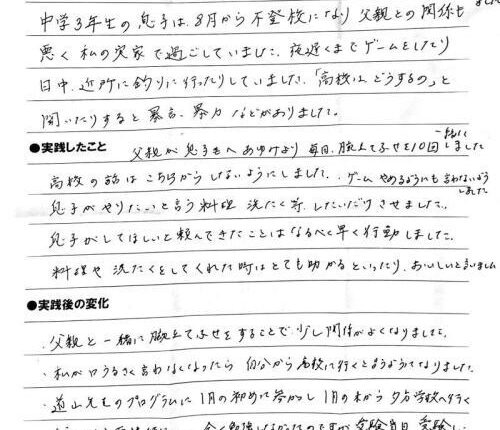 中学3年生の息子は、8月から不登校になり父親との関係も
悪く私の実家で過ごしていました。夜遅くまでゲームをしたり
日中、近所に釣りに行ったりしていました。「高校は、どうするの」と
聞いたりすると暴言、暴力などがありました。
●実践したこと 父親が息子へあゆみより 毎日、腕立てふせを10回一緒にしました
高校の話はこちらからしないようにしました。・ゲームやめるようにも言わないようにしました
息子がやりたいと言う料理 洗たく等、したいだけさせました。
息子がしてほしいと頼んできたことはなるべく早く行動しました。
料理や洗たくをしてくれた時はとても助かるといったり、おいしいと言いました
●実践後の変化
・父親と一緒に腕立てふせをすることで少し関係がよくなりました。
・私が口うるさく言わなくなったら自分から高校に行くと言うようになりました。
・道山先生のプログラムに1月の初めに参加し1月の末から夕方学校へ行く
全く勉強しなかったのですが受験当日受験し